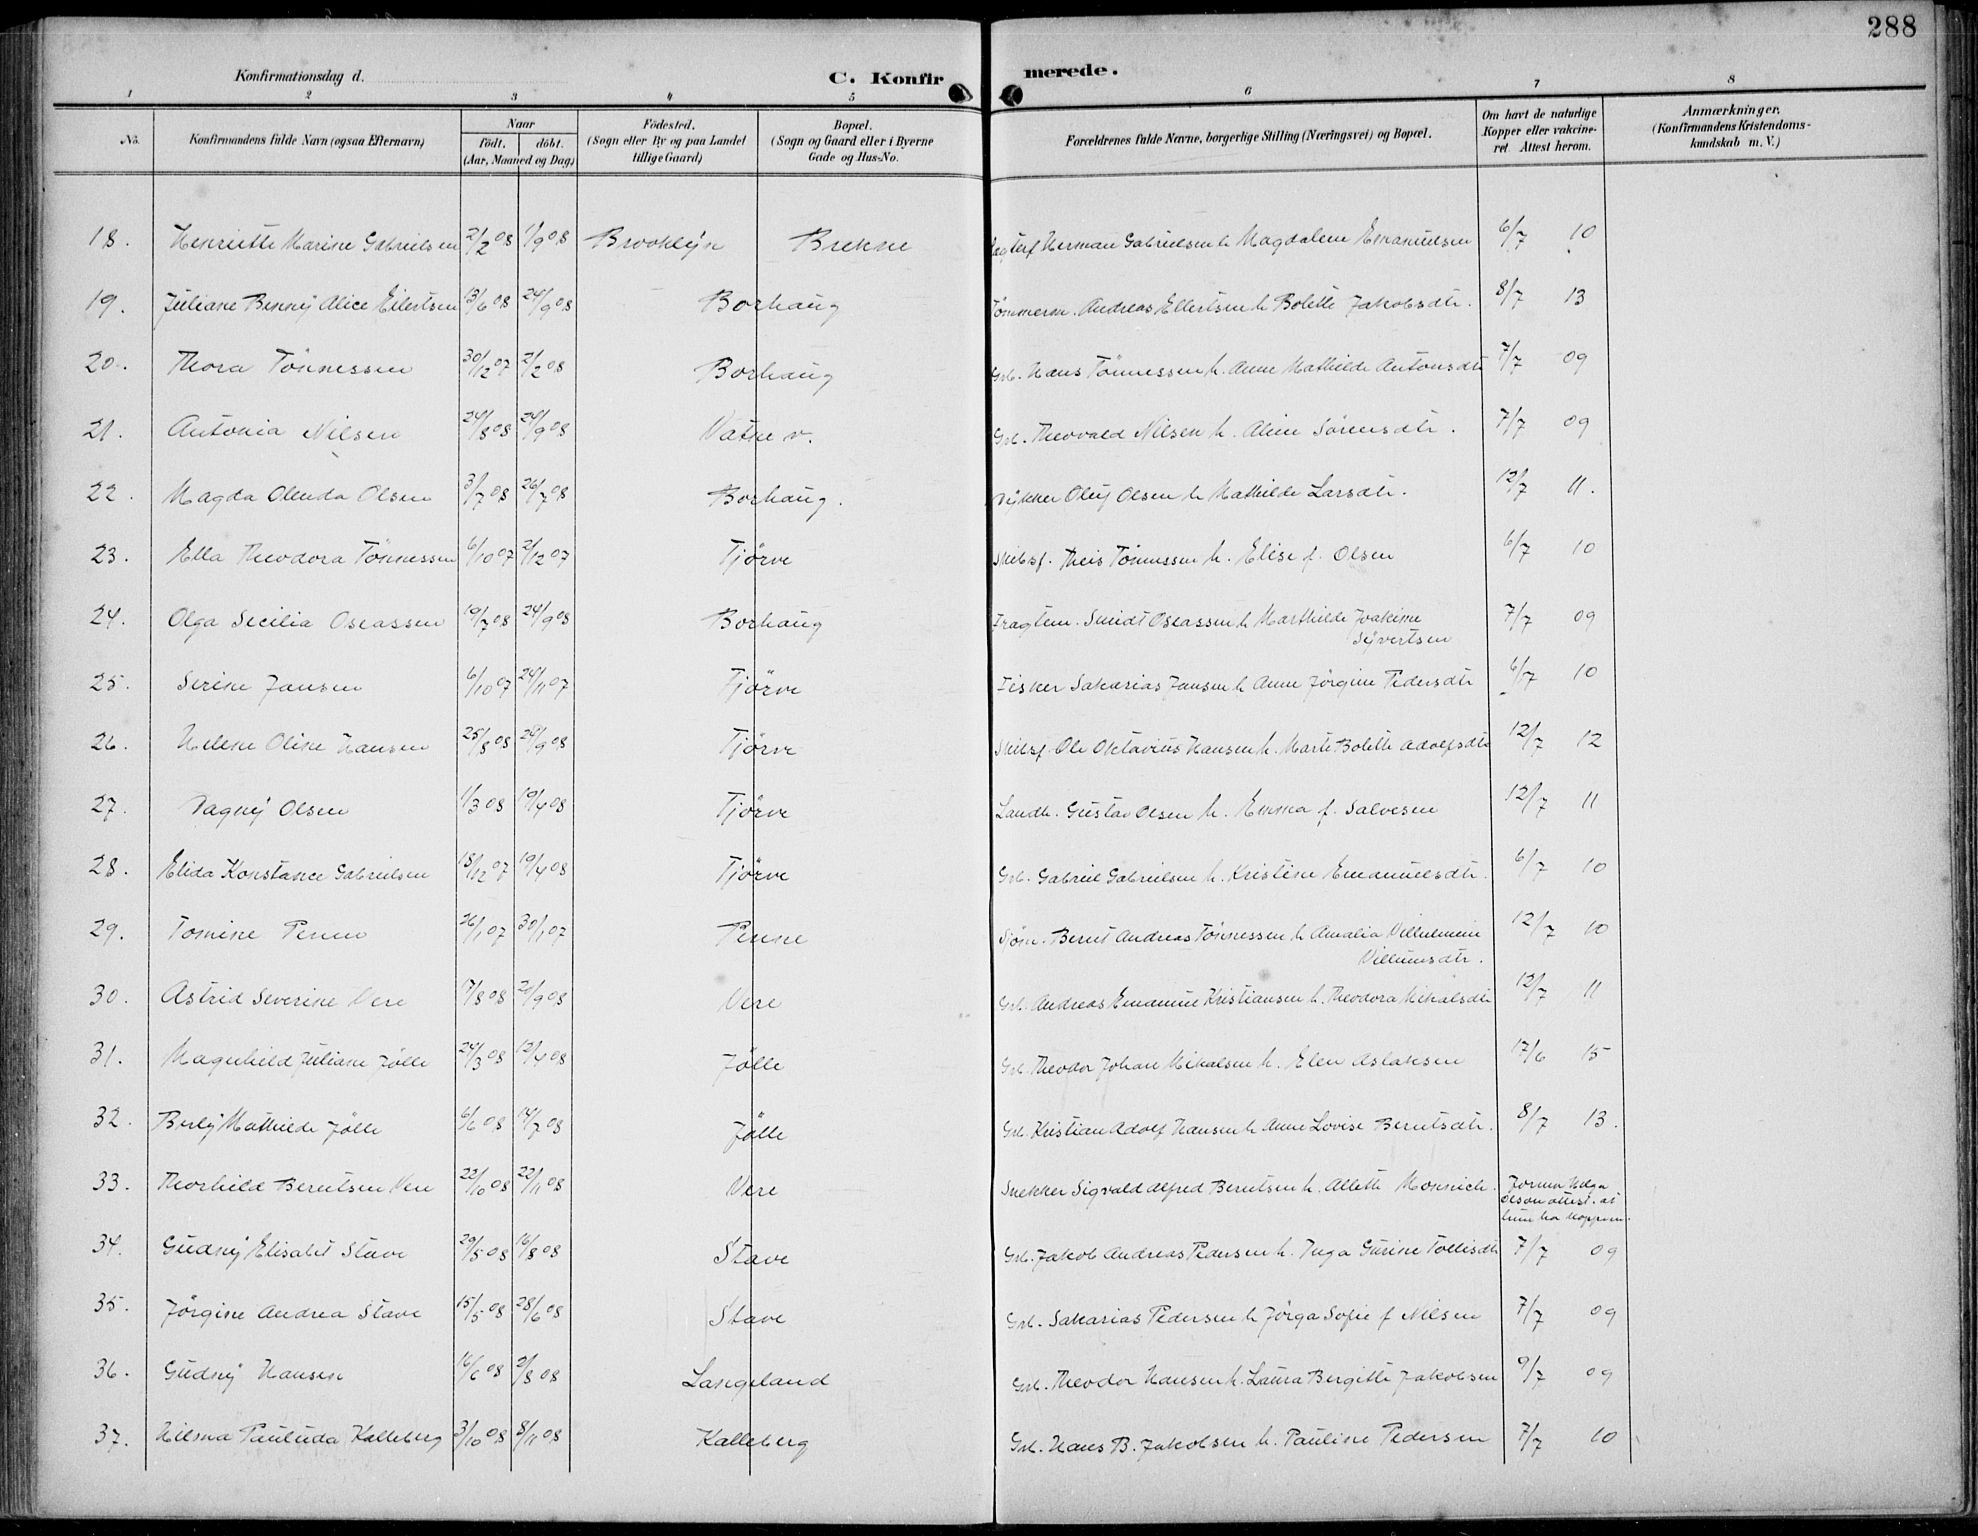 288
Konfirmationsdag d.
C. Konfirmerede.
1 2 3 4 5 6 7 8
No. Konfirmandens fulde Navn (ogsaa Efternavn) Naar födt. döbt. (Aar, Maaned og Dag) Födested. (Sogn eller By og paa Landet tillige Gaard) Bopæl. (Sogn og Gaard eller i Byerne Gade og Hus-No. Forældrenes fulde Navne, borgerlige Stilling (Næringsvei) og Bopæl. Om havt de naturlige Kopper eller vakcineret. Attest herom. Anmærkninger, (Konfirmandens Kristendomskundskab m. V.)
18. Henriette Marine Gabrielsen 2/2 08 1/9 08 Brooklyn Brekne Herman Gabrielsen h. Magdalene Emanuelsen 6/7 10
19. Juliane Benny Alice Eilertsen 13/6 08 24/9 08 Borhaug Tömmerm. Andreas Eilertsen h. Bolette Jakobsdtr. 8/7 13
20. Thora Tönnessen 30/12 07 2/2 08 Borhaug Grb. Hans Tönnessen h. Anne Mathilde Antonsdtr 7/7 09
21. Antonia Nilsen 24/8 08 24/9 08 Vatne v. Grb. Theovald Nilsen h. Aline Sörensdtr. 7/7 09
22. Magda Olenda Olsen 3/7 08 26/7 08 Borhaug. Oluf Olsen h. Mathilde Larsdtr. 12/7 11.
23. Ella Theodora Tönnessen 6/10 07 2/12 07 Tjörve Skibsf. Theis Tönnessen h. Elise f. Olsen 6/7 10
24. Olga Secilia Oseassen 19/7 08 24/9 08 Borhaug Fragtem. Smidt Oseassen h. Marthilde Joakime
Syvertsen 7/7 09
25. Serine Jansen 6/10 07 24/11 07 Tjörve Fisker Sakarias Jansen h. Anne Jörgine Pedersdtr 6/7 10
26. Helene Oline Hansen 25/8 08 29/9 08 Tjörve Skibsf. Ole Oktavius Hansen h. Marte Bolette Adolfsdtr 12/7 12
27. Dagny Olsen 1/3 08 19/4 08 Tjörve Landh. Gustav Olsen h. Emma f. Salvesen 12/7 11
28. Elida Konstance Gabrielsen 18/12 07 19/4 08 Tjörve Grb. Gabriel Gabrielsen h. Kristine Emanuelsdtr. 6/7 10
29. Tomine Penne 26/1 07 30/1 07 Penne Sjöm. Bernt Andreas Tönnessen h. Amalia Villumine
Villumsdtr. 12/7 10
30. Astrid Severine Vere 7/8 08 20/9 08 Vere Grb. Andreas Emanuel Kristiansen h. Theodora Mikalsdtr 12/7 11
31. Magnhild Juliane Jölle 24/3 08 12/4 08 Jölle Grb. Theodor Johan Mikalsen h. Elen Aslaksen 17/6 15
32. Berly Mathilde Jölle 6/6 08 14/7 08 Jölle Grb. Kristian Adolf Hansen h. Anne Lovise Berntsdtr. 8/7 13.
33. Thorhild Berntsen Vere 22/10 08 22/11 08 Vere Snekker Sigvald Alfred Berntsen h. Allette Monnich. Jormor Helga
Olson attest. at
hun har kopperne.
34. Gudny Elisabet Stave 29/5 08 16/8 08 Stave Grb. Jakob Andreas Pedersen h. Inga Gurine Tollisdtr 7/7 09
35. Jörgine Andrea Stave 15/5 08 28/6 08 Stave Grb. Sakarias Pedersen h. Jörga Sofie f. Nilsen 7/7 09
36. Gudny Hansen 16/6 08 2/8 08 Langeland Grb. Theodor Hansen h. Laura Bergitte Jakobsen 9/7 09
37. Hilma Paulinda Kalleberg 3/10 08 8/11 08 Kalleberg Grb. Hans B. Jakobsen h. Pauline Pedersen 7/7 10